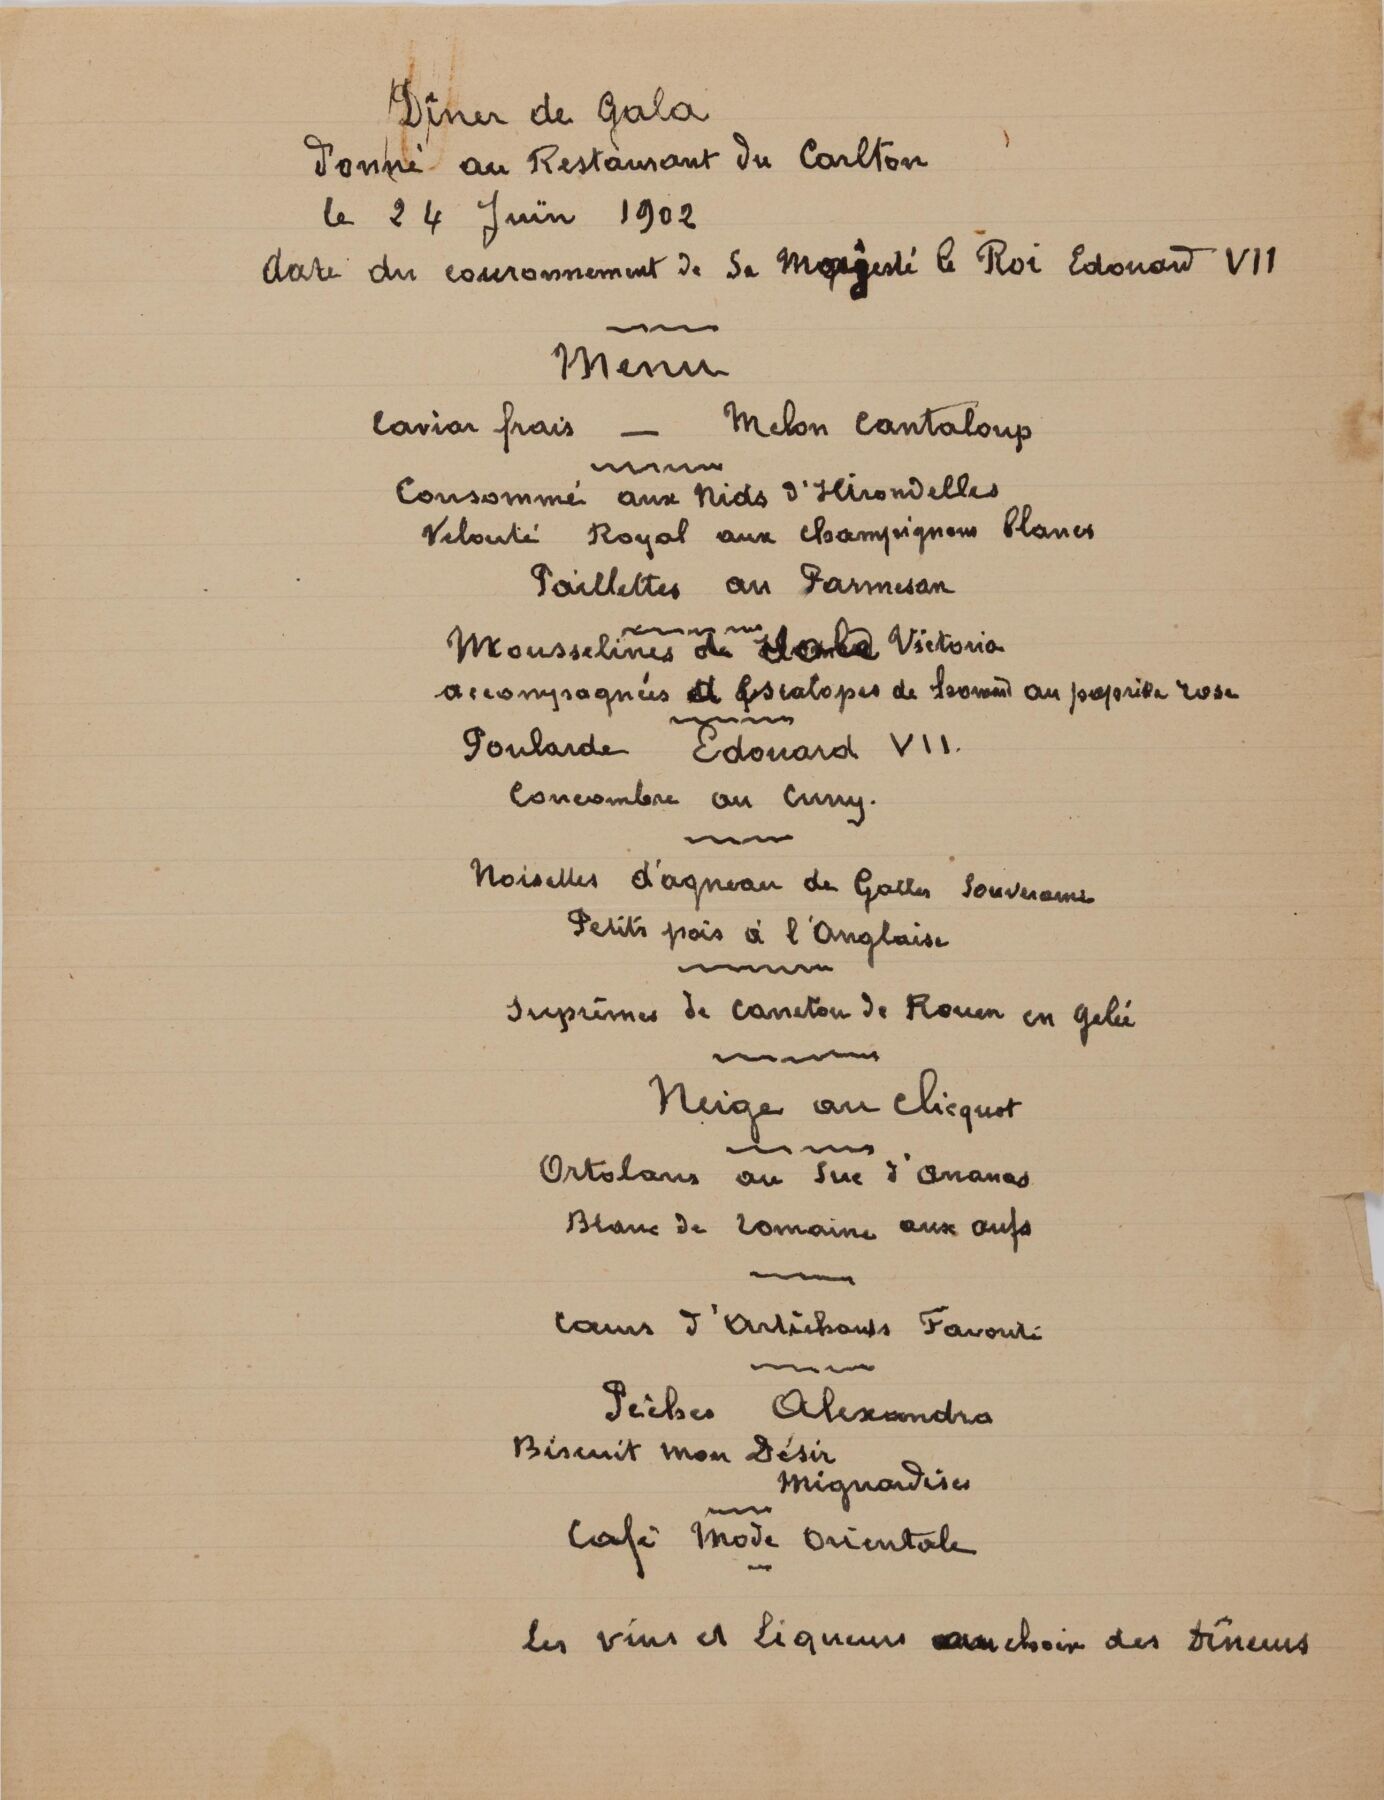 Dîner de Gala
Donné au Restaurant du Carlton
le 24 Juin 1902
date du couronnement de Sa Majesté le Roi Edouard VII
Menu
Caviar frais — Melon Cantaloup
Consommé aux Nids d'Hirondelles
Velouté Royal aux champignons blancs
Paillettes au Parmesan
Mousselines de Victoria
accompagnées d'Escalopes de homard au paprika rose
Poularde Edouard VII.
Concombre au Curry.
Noisettes d'agneau de Galles Souveraine
Petits pois à l'Anglaise
Suprêmes de Caneton de Rouen en Gelée
Neige au Clicquot
Ortolans au Suc d'Ananas
Blanc de romaine aux œufs
Cœurs d'Artichauts Favorite
Pêches Alexandra
Biscuit mon Désir
Mignardises
Café Mode Orientale
Les vins et Liqueurs au choix des Dîneurs